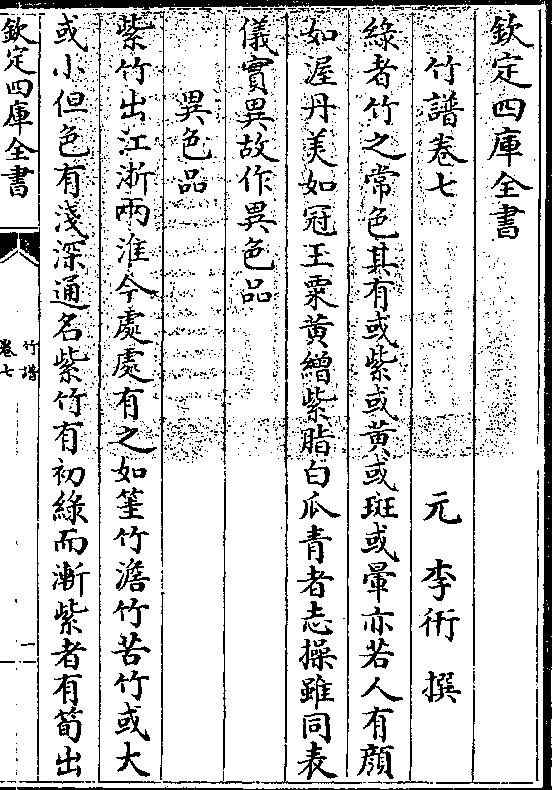 欽定四庫全書
竹譜卷七
元 李衎 撰
綠者竹之常色其有或紫或黃或斑或暈亦若人有顔
如渥丹美如冠玉粟黃繒紫脂白瓜青者志操雖同表
儀實異故作異色品
異色品
紫竹出江浙兩淮今處處有之如筀竹澹竹苦竹或大
或小但色有淺深通名紫竹有初綠而漸紫者有筍出
欽定四庫全書
竹譜
卷七
一